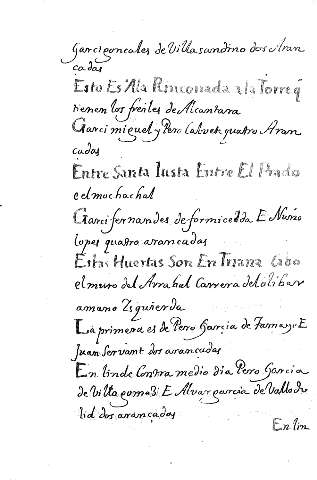 Garcigonçales de Villasandino dos Aran
cadas
Esto Es Ala Rinconada ala Torre q̃
tienen los freiles de Alcantara
Garci miguel y Pero Caluet quatro Aran
cadas
Entre Santa Iusta Entre El Prado
e el muchachal
Garci fernandes de formicedda E Nunȳo
lopes quatro arancadas
Estas Huertas Son En Triana Cabo
el muro del Arrabal Carrera del olibar
a mano Izquierda
La primera es de Pero Garcia de E
Juan Servant dos arancadas
En linde Contra medio dia Pero Garcia
de E Alvar garcia de Vallado
lid dos arancadas
En lin